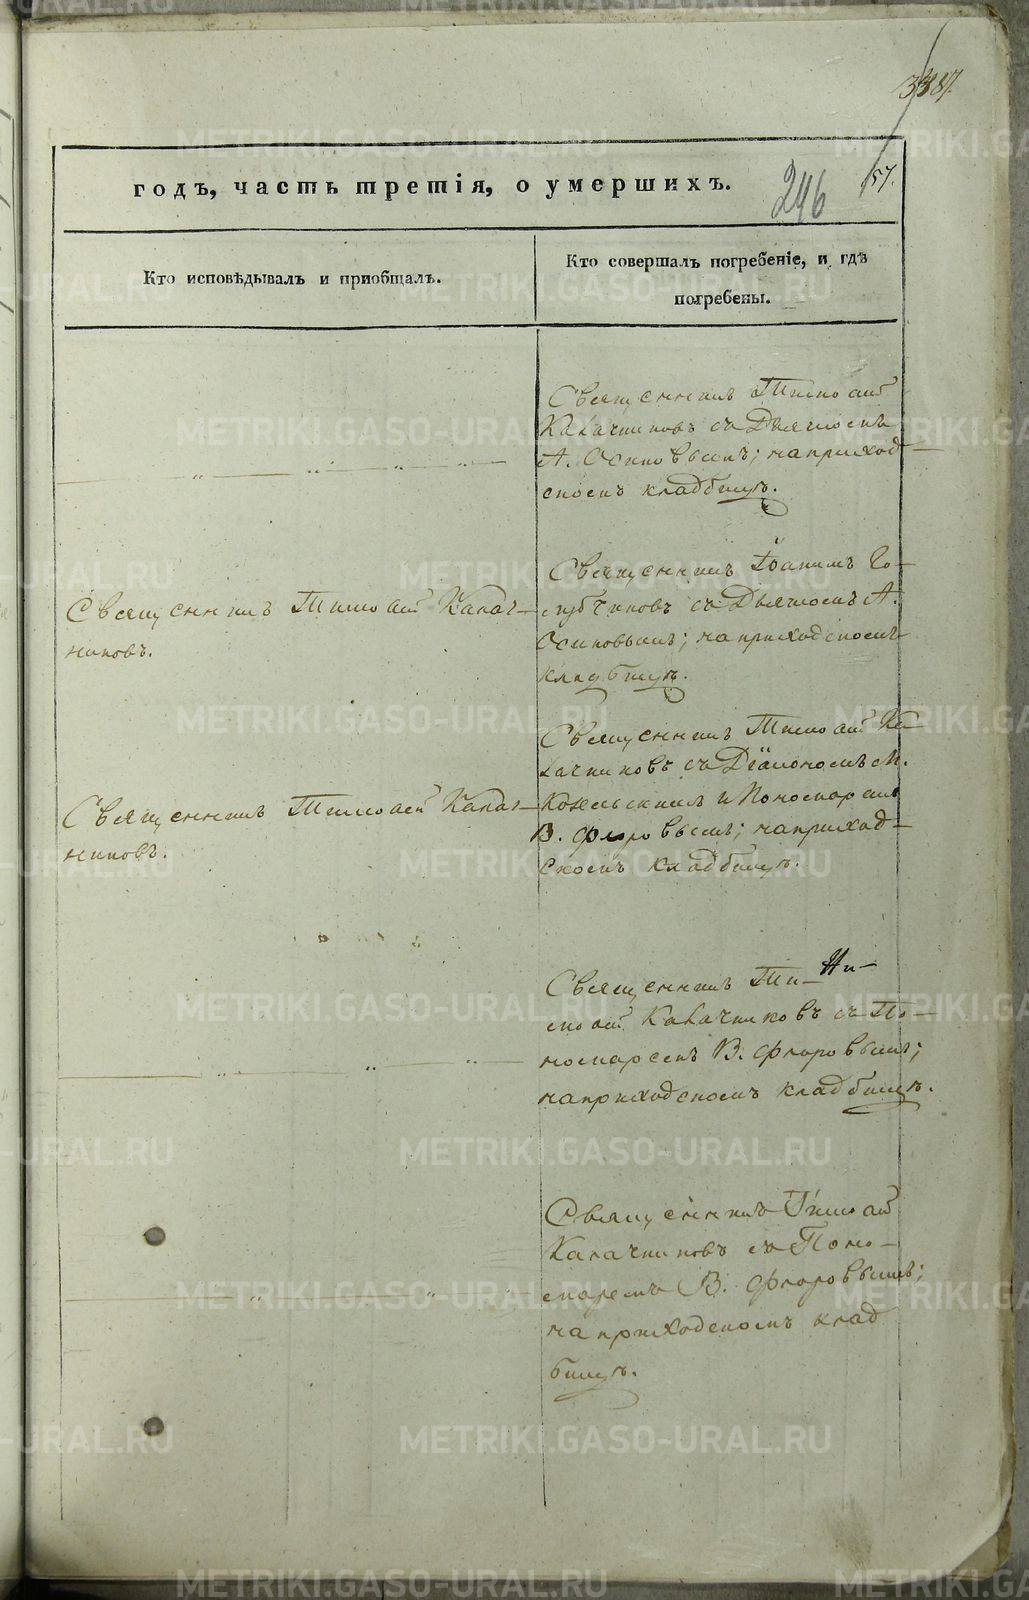 387.
57.
246
годъ, часть третія, о умершихъ.
Кто исповѣдывалъ и пріобщалъ.
Кто совершалъ погребеніе, и гдѣ
погребены.
Священникъ Тимоѳей
Калачниковъ съ Дьячкомъ
А. Осиповымъ; на приход-
скомъ кладбищѣ.
Священникъ Тимоѳей Калач-
никовъ.
Священникъ Іоаннъ Го-
лубчиковъ съ Дьячкомъ А.
Осиповымъ; на приходскомъ
кладбищѣ.
Священникъ Тимоѳей Калач-
никовъ.
Священникъ Тимоѳей Ка-
лачниковъ съ Діакономъ М.
и Пономаремъ
В. Флоровымъ; на приход-
скомъ кладбищѣ.
Священникъ Ти-
моѳей Калачниковъ съ По-
номаремъ В. Флоровымъ;
на приходскомъ кладбищѣ.
Священникъ Тимоѳей
Калачниковъ съ Поно-
маремъ В. Флоровымъ;
на приходскомъ клад
бищѣ.
METRIKI.GASO-URAL.RU